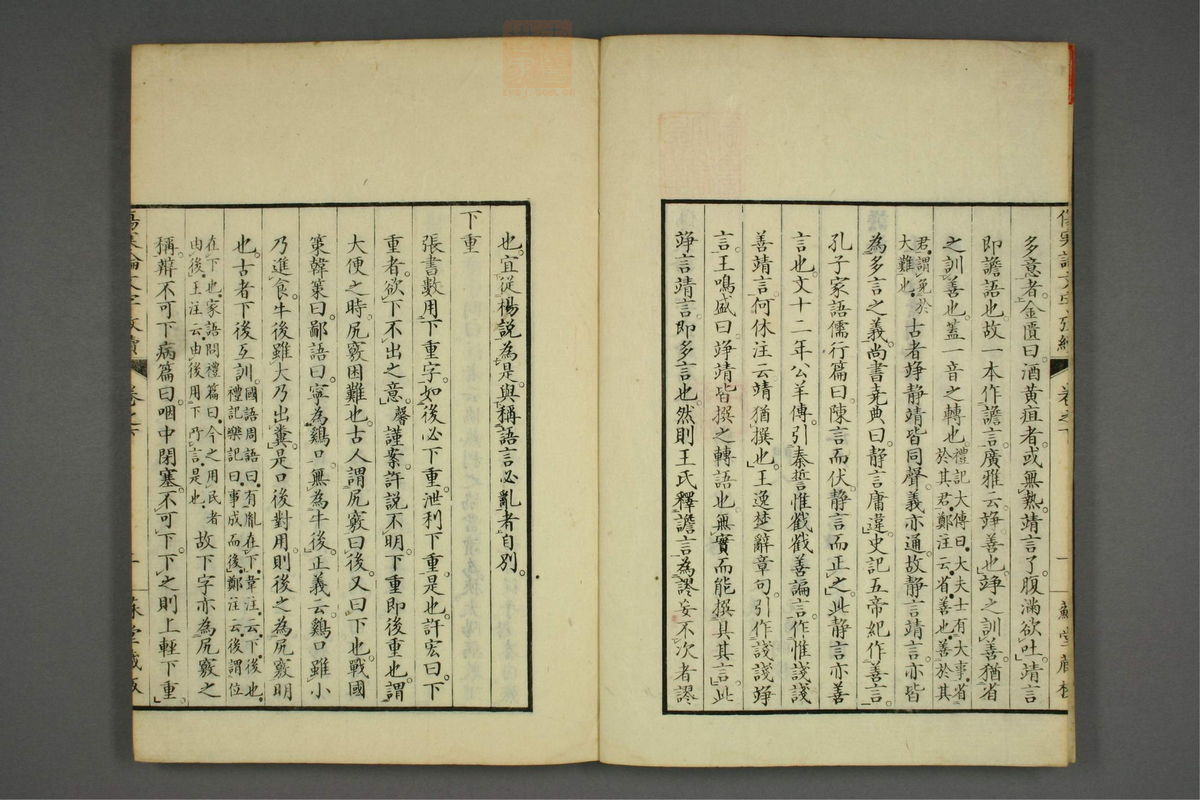 多意者金匱曰酒黃疸者或無熱靖言了腹滿欲吐靖言
即譫語也故一本作譫言廣雅云竫善也竫之訓善猶省
之訓善也蓋一音之轉也禮記大傳曰大夫士有大事省
於其君鄭注云省善也善於其
君謂免於
大難也古者竫静靖皆同聲義亦通故静言靖言亦皆
為多言之義尚書堯典曰静言庸違史記五帝紀作善言
孔子家語儒行篇曰陳言而伏静言而正之此静言亦善
言也文十二年公羊傳引秦誓惟戳戳善諞言作惟諓諓
善靖言何休注云靖猶撰也王逸楚辭章句引作諓諓竫
言王鳴盛曰竫靖皆撰之轉語也無實而能撰具其言此
竫言靖言即多言也然則王氏釋譫言為謬妄不次者謬
也宜從楊說為是與稱語言必亂者自別
下重
張書數用下重字如後必下重泄利下重是也許宏曰下
重者欲下不出之意馨謹案許說不明下重即後重也謂
大便之時尻竅困難也古人謂尻竅曰後又曰下也戰國
策韓策曰鄙語曰寧為鷄口無為牛後正義云鷄口雖小
乃進食牛後雖大乃出糞是口後對用則後之為尻竅明
也古者下後互訓國語周語曰有胤在下韋注云下後也
禮記樂記曰事成而後鄭注云後謂位
在下也家語問禮篇曰今之用民者
由後王注云由後用下所言是也故下字亦為尻竅之
稱辯不可下病篇曰咽中閉塞不可下下之則上輕下重
卷之下